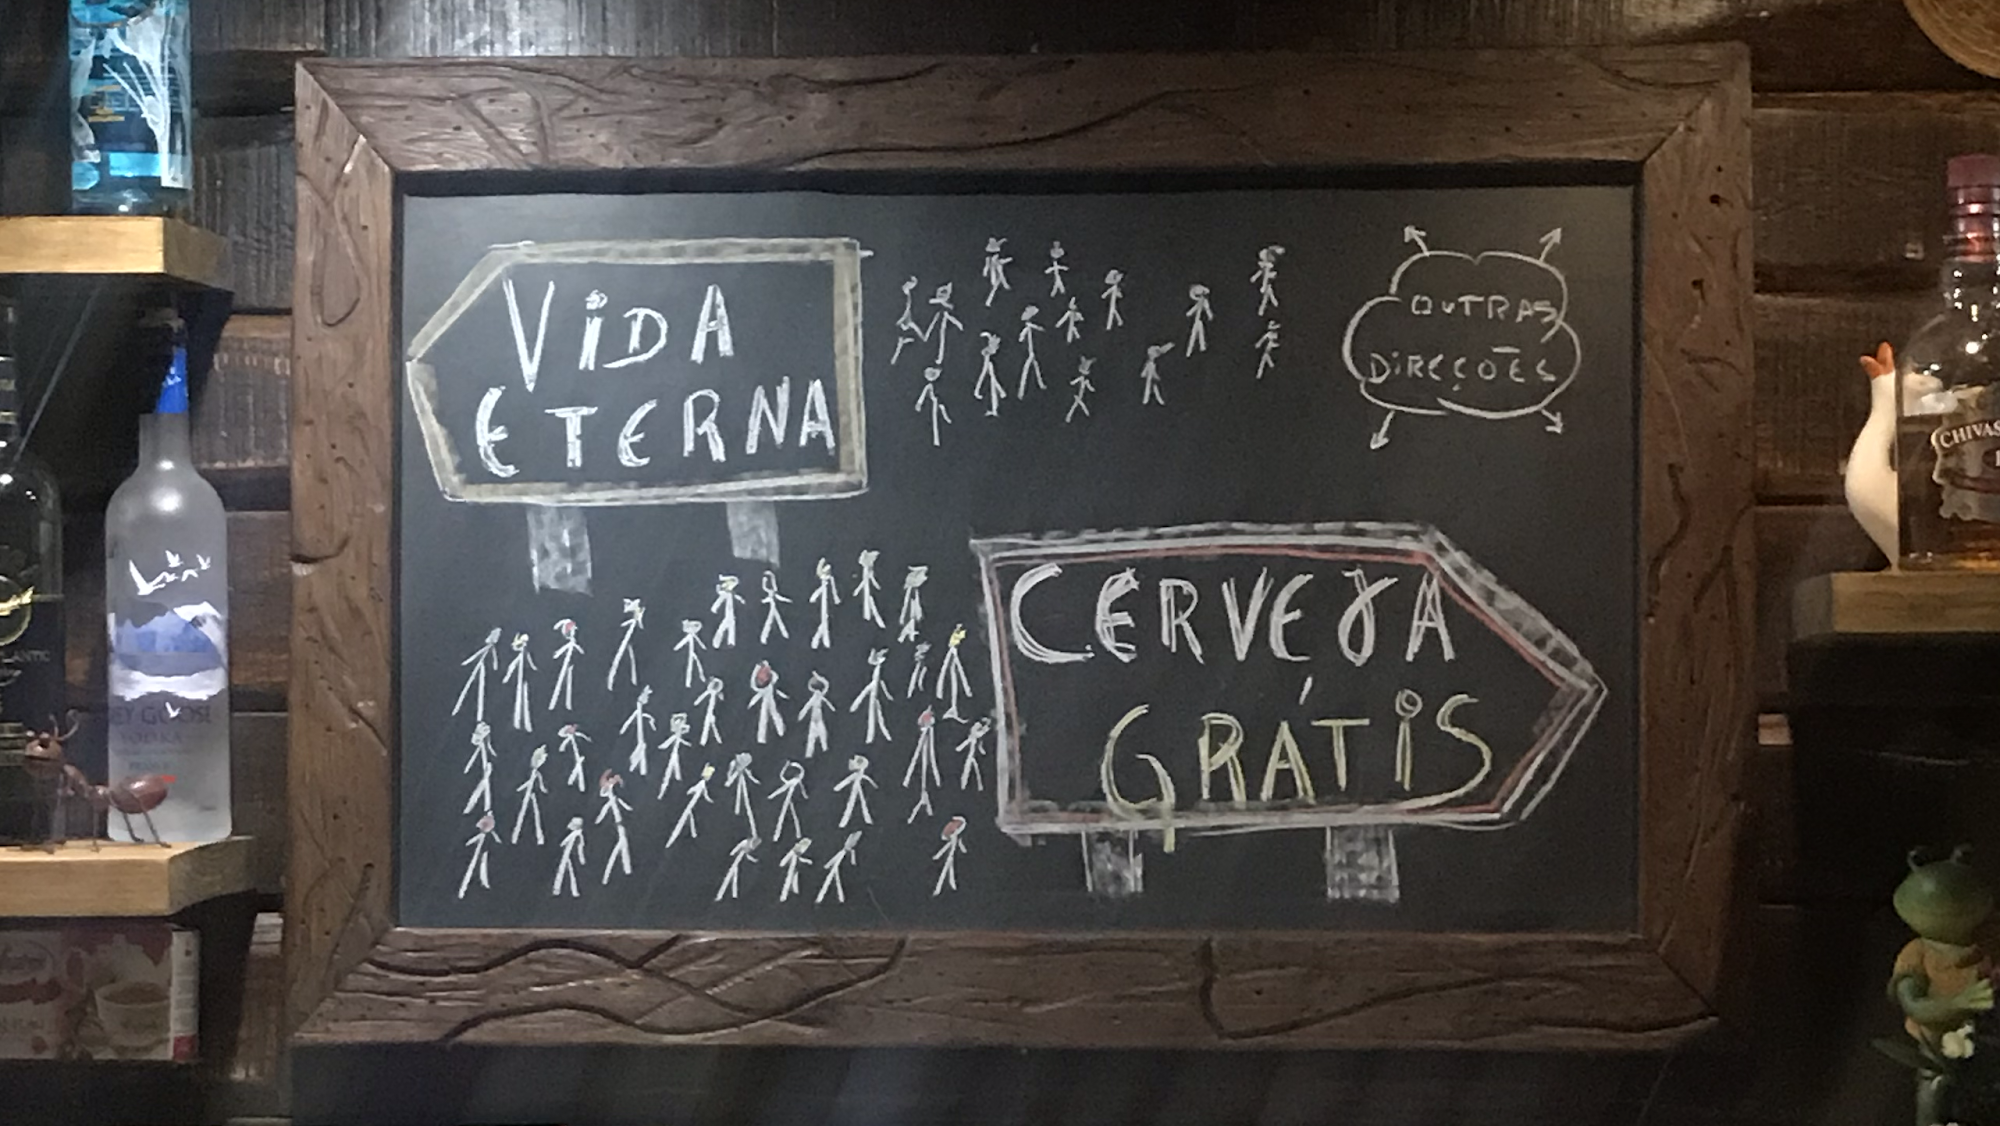 VIDA
ETERNA
OUTRAS
DIREÇÕES
CERVEJA
GRÁTIS
GREY GOOSE
VODKA
CHIVAS